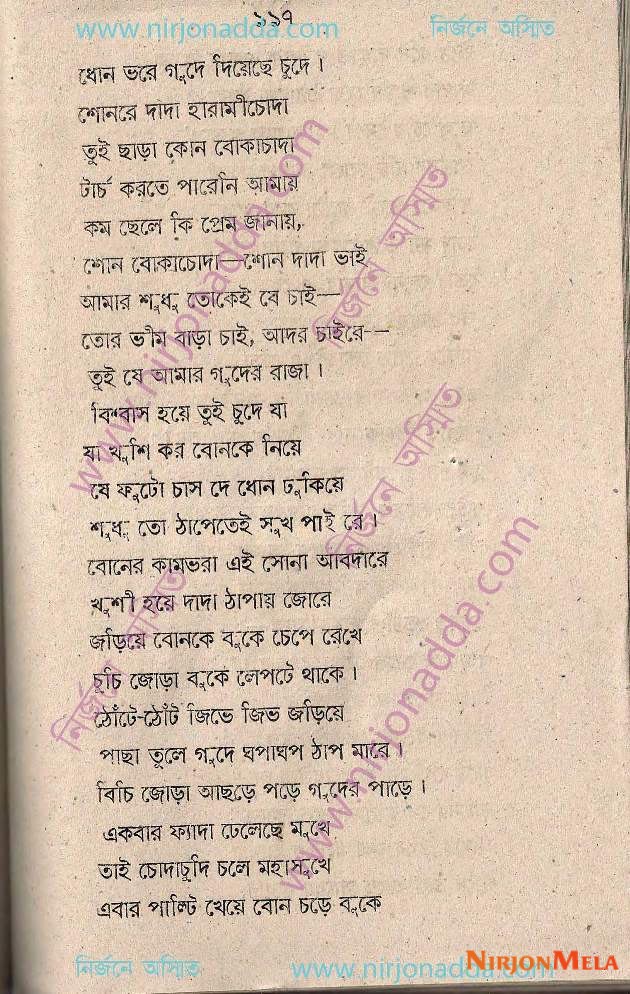 www.nirjonadda.com
১১৭
নির্জনে অস্মিত
ধোন ভরে গুদে দিয়েছে চুদে ।
শোনরে দাদা হারামীচোদা
তুই ছাড়া কোন বোকাচাদা
টার্চ করতে পারেনি আমায়
কম ছেলে কি প্রেম জানায়,
শোন বোকাচোদা—শোন দাদা ভাই
আমার শুধু তোকেই যে চাই—
তোর ভীম বাড়া চাই, আদর চাইরে--
তুই যে আমার গুদের রাজা ।
বিশ্বাস হয়ে তুই চুদে যা
যা খুশি কর বোনকে নিয়ে
যে ফুটো চাস দে ধোন ঢুকিয়ে
শুধু তো ঠাপেতেই সুখ পাই রে ।
বোনের কামভরা এই সোনা আবদারে
খুশী হয়ে দাদা ঠাপায় জোরে
জড়িয়ে বোনকে বুকে চেপে রেখে
চুচি জোড়া বুকে লেপটে থাকে ।
ঠোঁটে-ঠোঁট জিভে জিভ জড়িয়ে
পাছা তুলে গুদে ঘপাঘপ ঠাপ মারে ।
বিচি জোড়া আছড়ে পড়ে গুদের পাড়ে ।
একবার ফ্যাদা ঢেলেছে মুখে
তাই চোদাচুদি চলে মহাসুখে
এবার পাল্টি খেয়ে বোন চড়ে বুকে
www.nirjonadda.com
নির্জনে অস্মিত
নির্জনে অস্মিত
নির্জনে অস্মিত
www.nirjonadda.com
নির্জনে অস্মিত
www.nirjonadda.com
NIRJONMELA